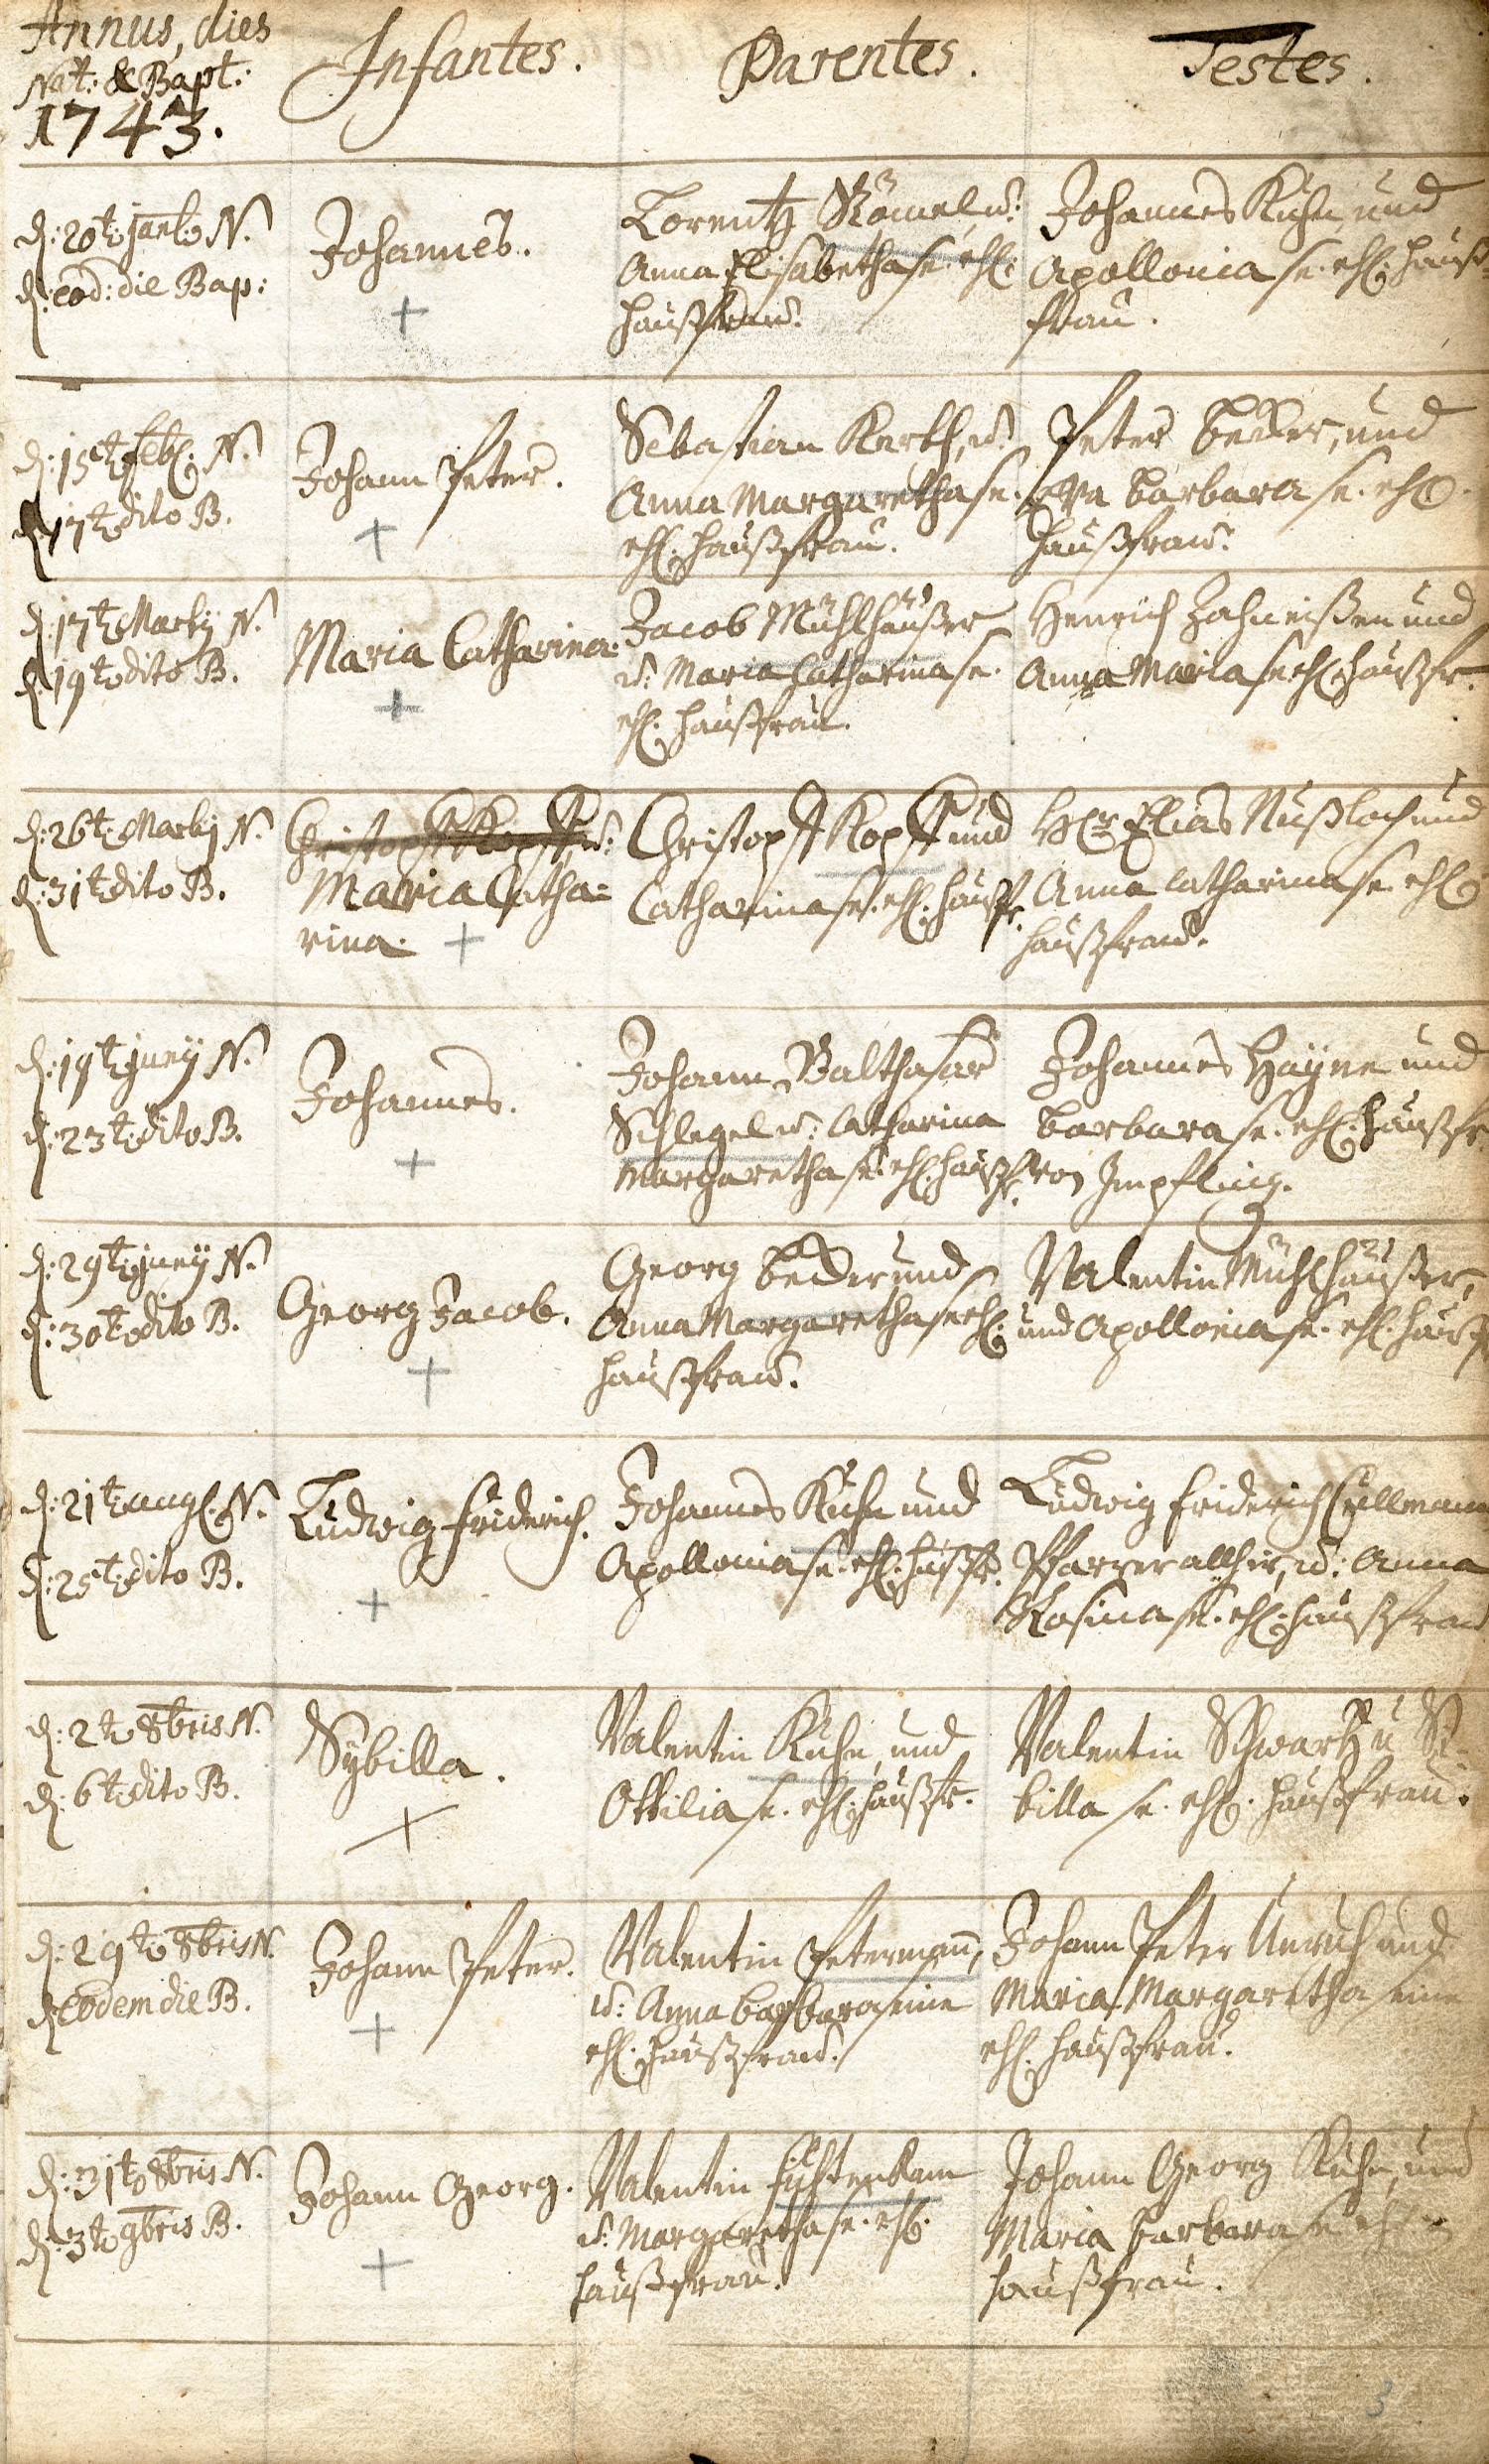 Annus, dies
Nat: & Bapt:
1743.
Infantes.
Parentes.
Testes.
d: 20t. N.
d: eod: die Bap:
Johannes.
Lorentz Römel u:
Anna Elisabetha se. ehl:
haußfrau.
Johannes Kuhn und
Apollonia se. ehl. hauß-
frau.
d: 15t febr. N.
d: 17t dito B.
Johann Peter.
Sebastian Kerth, u:
Anna Margaretha se.
ehl. haußfrau.
Peter becker, und
Eva barbara se. ehl.
haußfrau.
d: 17t Martij N.
d: 19t dito B.
Maria Catharina.
Jacob Mühlhäußer
u: Maria Catharina se.
ehl. haußfrau.
Henrich und
Anna Maria se ehl. haußfr.
d: 26t. Martij N.
d: 31t dito B.
Christoph Kopff u:
Maria Catha=
rina.
Christoph Kopff und
Catharina se. ehl. haußfr.
Hr. Elias Nußloch und
Anna Catharina se. ehl.
haußfrau.
d: 19t junij N.
d: 23t. dito B.
Johannes.
Johann Balthasar
Schlegel u: Catharina
Margaretha se. ehl. haußfr.
Johannes Hayne und
barbara se. ehl. haußfr.
von Impfling.
d: 29t. junij N.
d: 30t. dito B.
Georg Jacob.
Georg becker und
Anna Margaretha se ehl.
haußfrau.
Valentin Mühlhäußer,
und Apollonia se. ehl. haußf
d: 21t. aug. N.
d: 25t. dito B.
Ludwig friderich.
Johannes Kuhn und
Apollonia se. ehl. haußfr.
Ludwig friderich Cullmann
Pfarrer allhier, u: Anna
Rosina se. ehl. haußfrau
d: 2t. 8bris N.
d: 6t. dito B.
Sybilla.
Valentin Kuhn, und
Ottilia se. ehl. haußfr.
Valentin Schwartz u Si-
billa se. ehl. haußfrau.
d: 29t. 8bris N.
d: eodem die B.
Johann Peter.
Valentin Peterman,
u: Anna barbara seine
ehl. haußfrau.
Johann Peter Unruh und
Maria Margaretha seine
ehl. haußfrau.
d: 31t. 8bris N.
d: 3t. 9bris B.
Johann Georg.
Valentin
u: Margaretha se. ehl.
haußfrau.
Johann Georg Kuhn, und
Maria barbara se ehl.
haußfrau.
3